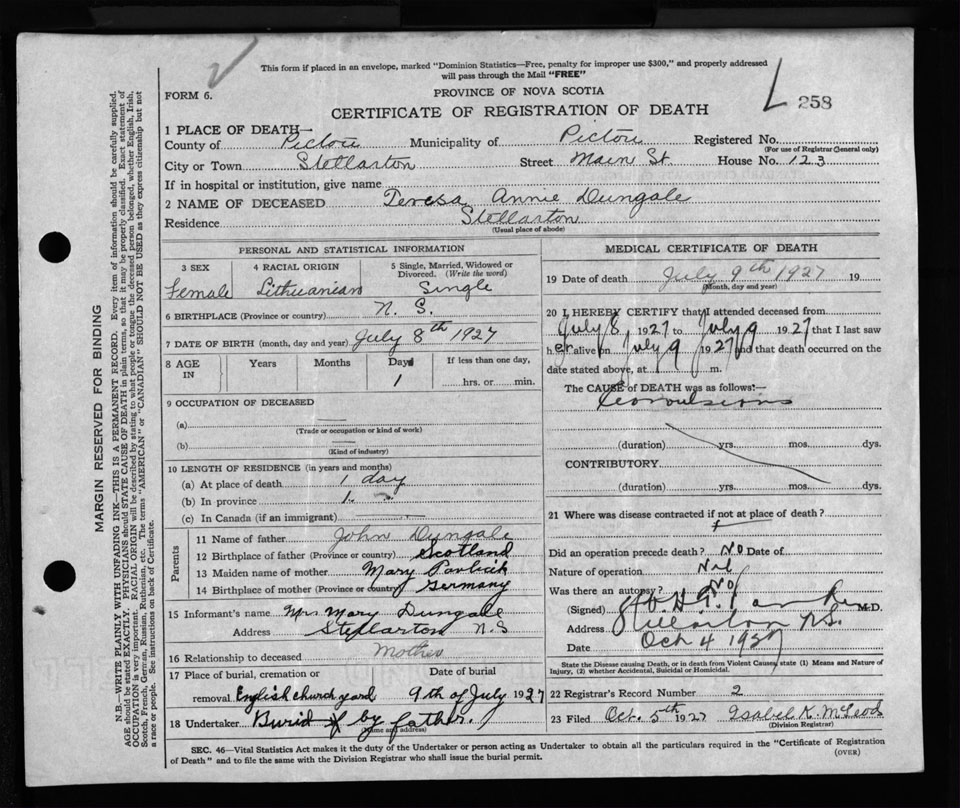 This form if placed in an envelope, marked "Dominion Statistics—Free, penalty for improper use $300," and properly addressed
will pass through the Mail "FREE"
FORM 6.
PROVINCE OF NOVA SCOTIA
CERTIFICATE OF REGISTRATION OF DEATH
258
1 PLACE OF DEATH—
County of Pictou Municipality of Pictou Registered No.
(For use of Registrar General only)
City or Town Stellarton Street Main St. House No. 123
If in hospital or institution, give name
2 NAME OF DECEASED Teresa Annie Dungale
Residence Stellarton
(Usual place of abode)
PERSONAL AND STATISTICAL INFORMATION
3 SEX 4 RACIAL ORIGIN 5 Single, Married, Widowed or
Divorced. (Write the word)
Female Lithuanian Single
6 BIRTHPLACE (Province or country) N. S.
7 DATE OF BIRTH (month, day and year) July 8th 1927
8 AGE IN Years Months Days If less than one day,
1 hrs. or min.
9 OCCUPATION OF DECEASED
(a) —
(Trade or occupation or kind of work)
(b) —
(Kind of industry)
10 LENGTH OF RESIDENCE (in years and months)
(a) At place of death 1 day
(b) In province 1 "
(c) In Canada (if an immigrant)
Parents
11 Name of father John Dungale
12 Birthplace of father (Province or country) Scotland
13 Maiden name of mother Mary
14 Birthplace of mother (Province or country) Germany
15 Informant's name Mrs Mary Dungale
Address Stellarton N.S
16 Relationship to deceased Mother
17 Place of burial, cremation or Date of burial
removal English church yard 9th of July 1927
18 Undertaker Buried by father.
(Name and address)
MEDICAL CERTIFICATE OF DEATH
19 Date of death July 9th 1927 19
(Month, day and year)
20 I HEREBY CERTIFY that I attended deceased from
July 8, 1927 to July 9 1927 that I last saw
her alive on July 9 1927 and that death occurred on the
date stated above, at m.
The CAUSE of DEATH was as follows:—
Convulsions
(duration) yrs. mos. dys.
CONTRIBUTORY
(duration) yrs. mos. dys.
21 Where was disease contracted if not at place of death?
Did an operation precede death? No Date of
Nature of operation Nil
Was there an autopsy? No
(Signed) M.D.
Address Stellarton N.S.
Date Oct 4 1927
State the Disease causing Death, or in death from Violent Causes, state (1) Means and Nature of
Injury, and (2) whether Accidental, Suicidal or Homicidal.
22 Registrar's Record Number 2
23 Filed Oct. 5th 1927 Isabel K. McLeod
(Division Registrar)
SEC. 46—Vital Statistics Act makes it the duty of the Undertaker or person acting as Undertaker to obtain all the particulars required in the "Certificate of Registration
of Death" and to file the same with the Division Registrar who shall issue the burial permit.
(OVER)
MARGIN RESERVED FOR BINDING
N.B.—WRITE PLAINLY WITH UNFADING INK—THIS IS A PERMANENT RECORD. Every item of information should be carefully supplied.
AGE should be stated EXACTLY. PHYSICIANS should STATE CAUSE OF DEATH in plain terms, so that it may be properly classified. Exact statement of
OCCUPATION is very important. RACIAL ORIGIN will be described by stating to what people or tongue the deceased person belonged, whether English, Irish,
Scotch, French, German, Russian, Ruthenian, etc. The terms "AMERICAN" or "CANADIAN" SHOULD NOT BE USED as they express citizenship but not
a race or people. See instructions on back of Certificate.